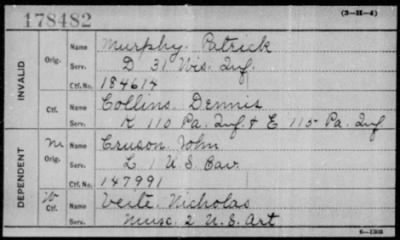 178482
(3-H-4)
INVALID
Orig. Name Murphy, Patrick
Serv. D 31 Wis. Inf.
Ctf. No. 184614
Ctf. Name Collins, Dennis
Serv. K 110 Pa. Inf. & E 115 Pa. Inf.
DEPENDENT
m Orig. Name Cruson, John
Serv. L 1 U S Cav.
Ctf. No. 147991
W Ctf. Name Veite, Nicholas
Serv. Musc. 2 U.S. Art